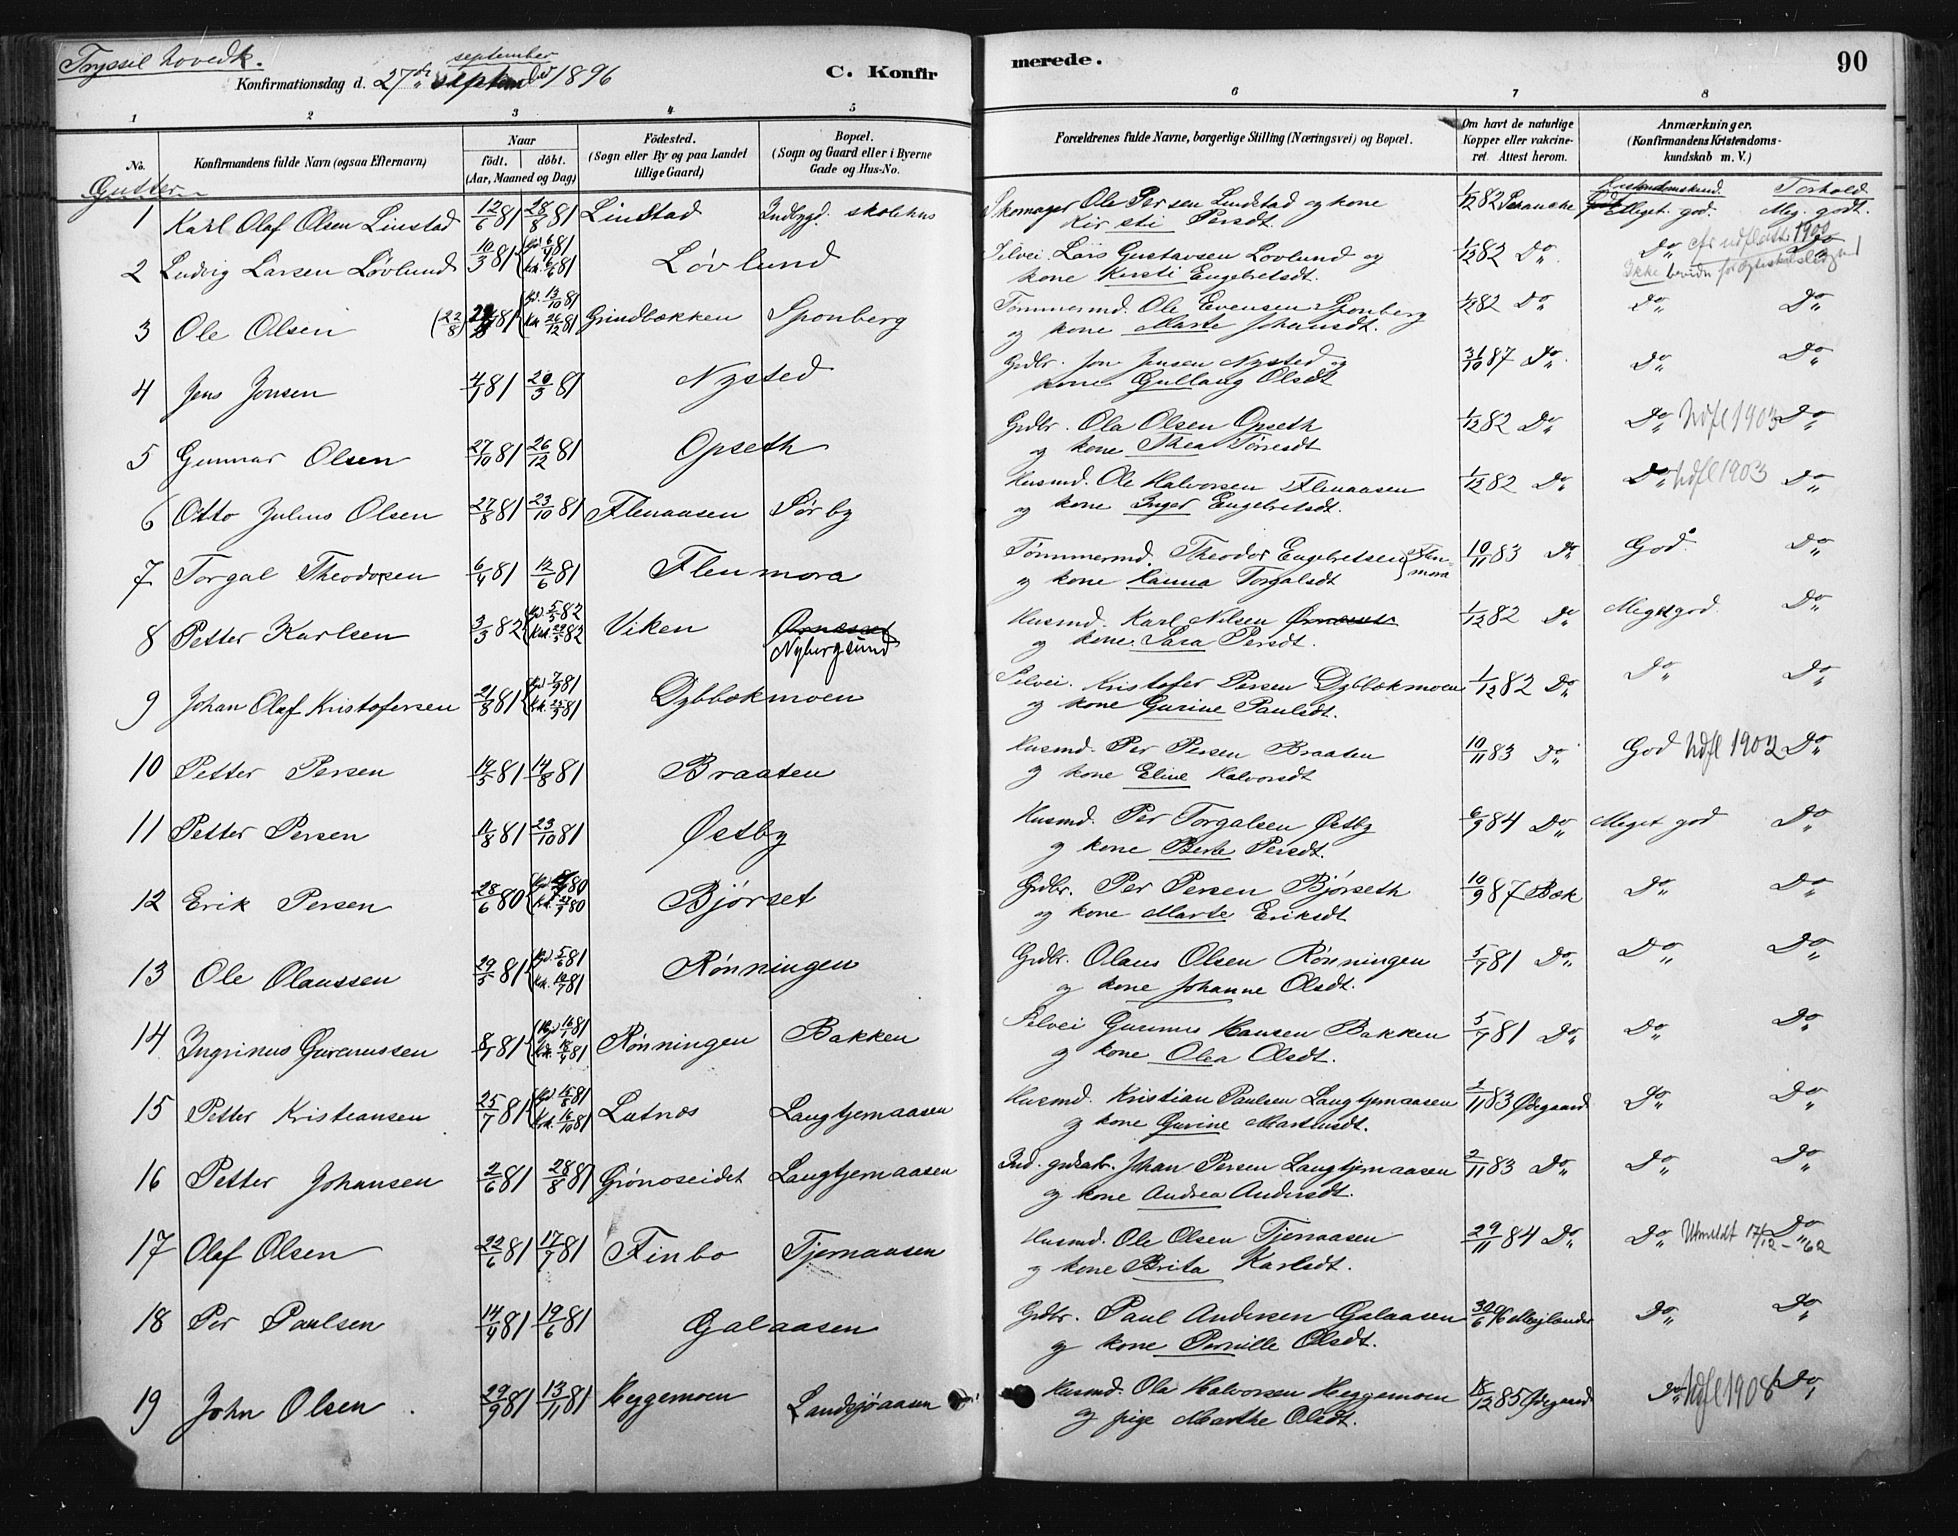 Trysil hovedk.
september
Konfirmationsdag d. 27de september 1896
C. Konfirmerede.
90
1 2 3 4 5 6 7 8
No.
Konfirmandens fulde Navn (ogsaa Efternavn)
Naar
födt. döbt.
(Aar, Maaned og Dag)
Födested.
(Sogn eller By og paa Landet tillige Gaard)
Bopæl.
(Sogn og Gaard eller i Byerne Gade og Hus-No.
Forældrenes fulde Navne, borgerlige Stilling (Næringsvei) og Bopæl.
Om havt de naturlige Kopper eller vakcineret. Attest herom.
Anmærkninger.
(Konfirmandens Kristendomskundskab m. V.)
Gutter
Kristendomskund. Forhold
1 Karl Olaf Olsen Linstad 12/6 81 28/8 81 Linstad Indbygd. skolehus Skomager Ole Persen Lindstad og kone Kirsti Persdt. 1/12 82 Meget god. Meg. godt.
2 Ludvig Larsen Løvlund 10/3 81 Løvlund Selvei. Lars Gustavsen Lovlund og kone Kirsti Engebretsdt. 1/12 83 Do Do udfl. att. 1900 Do
3 Ole Olsen (22/8) 81 Gd. 13/10 81 Kk. 26/12 81 Grindbækken Sponberg Tømmermd. Ole Evensen Sponberg og kone Marte Johansdt. 1/12 82 Do Do Do
4 Jens Jonsen 4/1 81 20/3 81 Nysted Grdbr. Jon Jensen Nysted og kone Gullaug Olsdt 31/10 87 Do Do Do
5 Gunnar Olsen 27/10 81 26/12 81 Opseth Grdbr. Ola Olsen Opseth og kone Thea Tøresdt 1/12 82 Do Do Udfl 1903 Do
6 Otto Julius Olsen 27/8 81 23/10 81 Flenaasen Sørby Husmd. Ole Halvorsen Flenaasen og kone Inger Engebretsdt. 1/12 82 Do Do Udfl 1903 Do
7 Torgal Theodorsen 6/4 81 12/6 81 Flenmora Tømmermd. Theodor Engebretsen Flenmora og kone Hanna Torgalsdt 10/11 83 Do God. Do
8 Petter Karlsen 3/3 82 Gd. 5/5 82 Kk. 29/5 82 Viken Ornæset Nybergsund Husmd. Karl Nilsen Ørnæset og kone Sara Persdt. 1/12 82 Do Meget god. Do
9 Johan Olaf Kristofersen 21/8 81 Dybbækmoen Selvei. Kristofer Persen Dybbækmoen og kone Gurine Paulsdt. 1/12 82 Do Do Do
10 Petter Persen 14/5 81 14/8 81 Braaten Husmd. Per Persen Braaten og kone Eline Halvorsdt 10/11 83 Do God Udfl 1902 Do
11 Petter Persen 11/8 81 23/10 81 Østby Husmd. Per Torgalsen Østby og kone Berte Persdt. 6/9 84 Do Meget god Do
12 Erik Persen 28/6 80 Bjørset Grdbr. Per Persen Bjørseth og kone Marte Eriksdt 10/9 87 Bæk Do Do
13 Ole Olaussen 29/5 81 Gd. 5/6 81 Kk. 10/7 81 Rønningen Grdbr. Olaus Olsen Rønningen og kone Johanne Olsdt. 5/7 81 Do Do Do
14 Ingrinus Gunerussen 8/1 81 Rønningen Bakken Selvei Gunerus Hansen Bakken og kone Olea Olsdt. 5/7 81 Do Do Do
15 Petter Kristiansen 25/7 81 Gd. 15/8 81 Kk. 16/10 81 Lutnes Langtjernaasen Husmd. Kristian Paulsen Langtjernaasen og kone Gurine Martinsdt. 2/11 83 Ødegaard Do Do
16 Petter Johansen 2/6 81 28/8 81 Grønoseidet Langtjernaasen Ind. grdsarb. Johan Persen Langtjernaasen og kone Andrea Andersdt. 2/11 83 Do Do Do
17 Olaf Olsen 22/6 81 17/7 81 Finbo Tjernaasen Husmd. Ole Olsen Tjernaasen og kone Brita Karlsdt. 29/11 84 Do Do Utmeldt 17/12-62 Do
18 Per Paulsen 14/4 81 19/6 81 Galaasen Grdbr. Paul Andersen Galaasen og kone Pernille Olsdt. 30/6 96 Mejlænder Do Do
19 John Olsen 29/9 81 13/11 81 Heggemoen Landsjøaasen Husmd. Ola Halvorsen Heggemoen og pige Marthe Olsdt. 18/12 85 Ødegaard Do Udfl 1908 Do